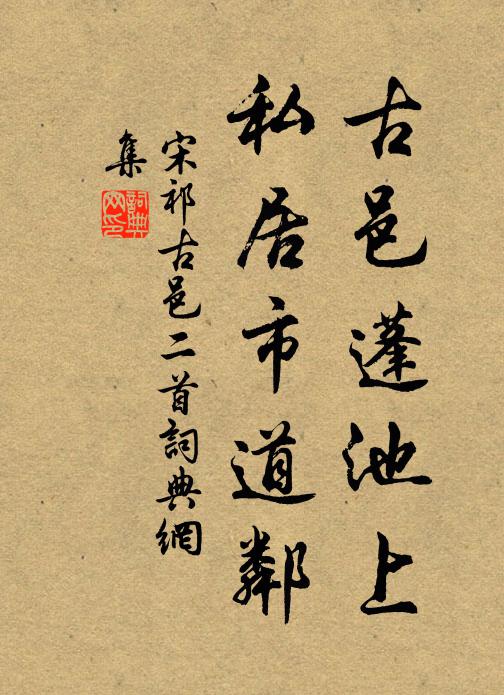 古邑蓬池上
私居市道鄰
宋祁古邑二首詞典網
集
詞典
网印